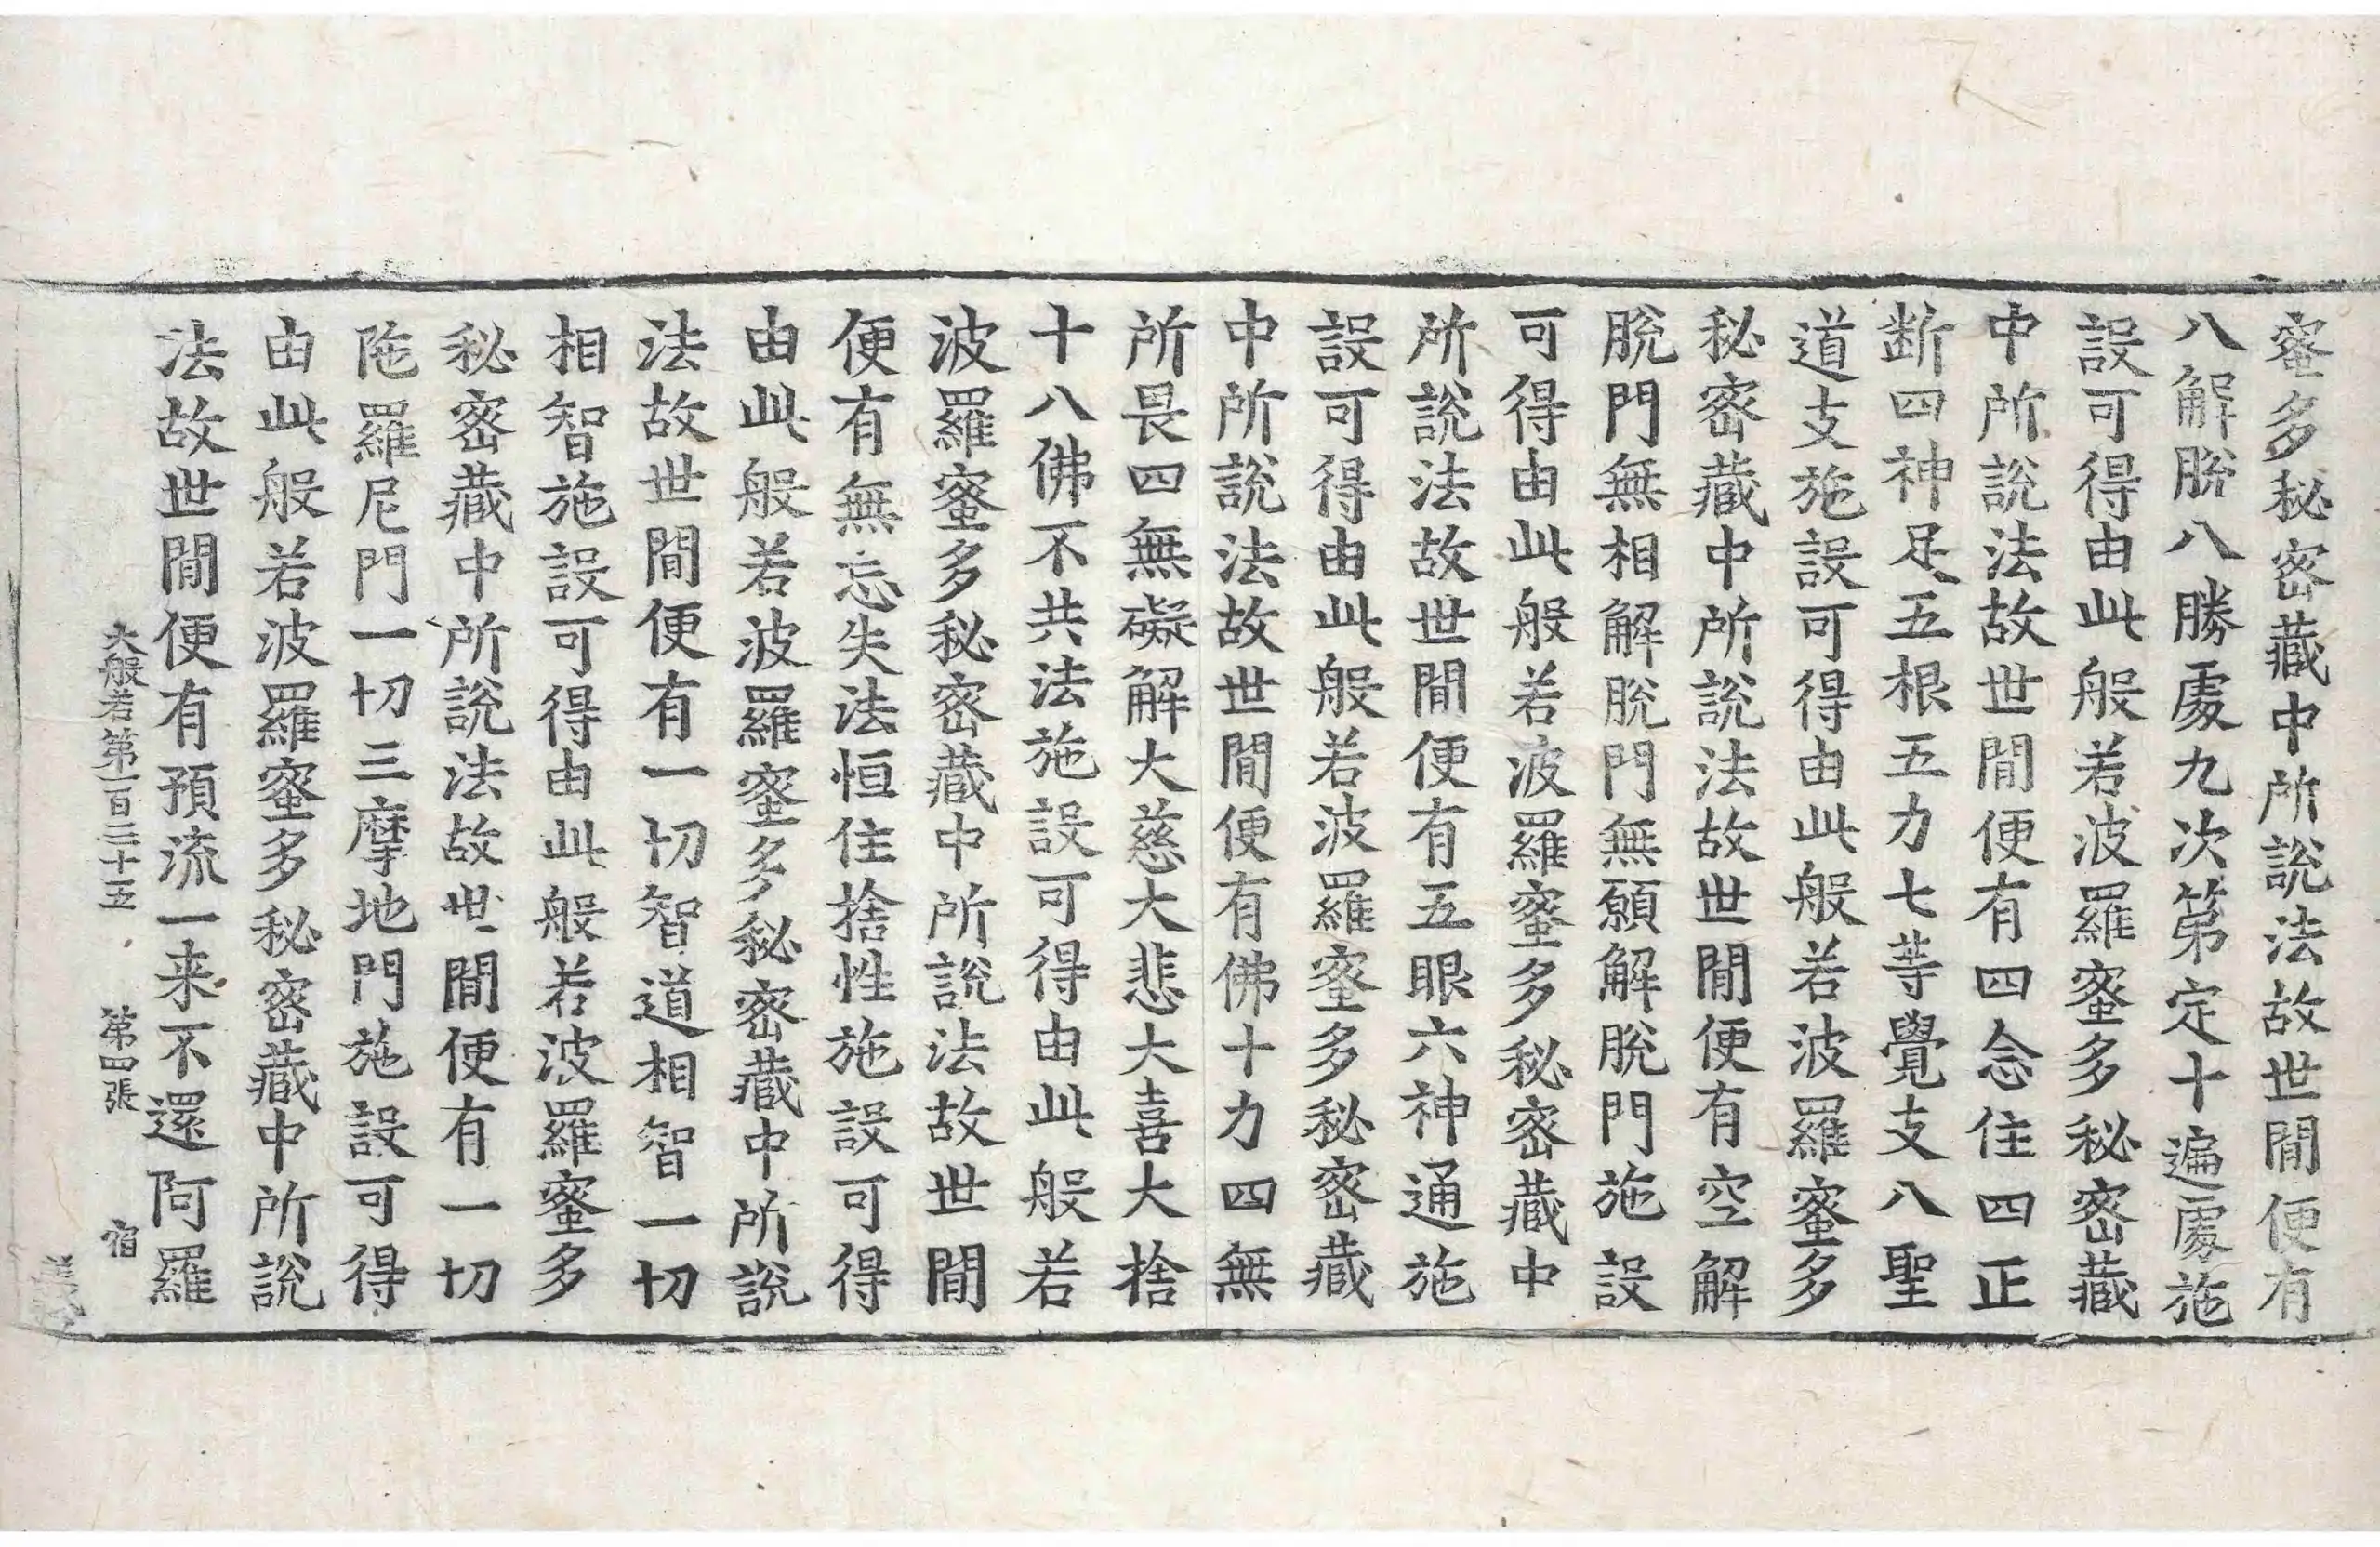 蜜多秘密藏中所說法故世間便有
八解脫八勝處九次第定十遍處施
設可得由此般若波羅蜜多秘密藏
中所說法故世間便有四念住四正
断四神足五根五力七等覺支八聖
道支施設可得由此般若波羅蜜多
秘密藏中所說法故世間便有空解
脫門無相解脫門無願解脫門施設
可得由此般若波羅蜜多秘密藏中
所說法故世間便有五眼六神通施
設可得由此般若波羅蜜多秘密藏
中所說法故世間便有佛十力四無
所畏四無礙解大慈大悲大喜大捨
十八佛不共法施設可得由此般若
波羅蜜多秘密藏中所說法故世間
便有無忘失法恒住捨性施設可得
由此般若波羅蜜多秘密藏中所說
法故世間便有一切智道相智一切
相智施設可得由此般若波羅蜜多
秘密藏中所說法故世間便有一切
陁羅尼門一切三摩地門施設可得
由此般若波羅蜜多秘密藏中所說
法故世間便有預流一来不還阿羅
大般若第一百二十五 第四張 宿